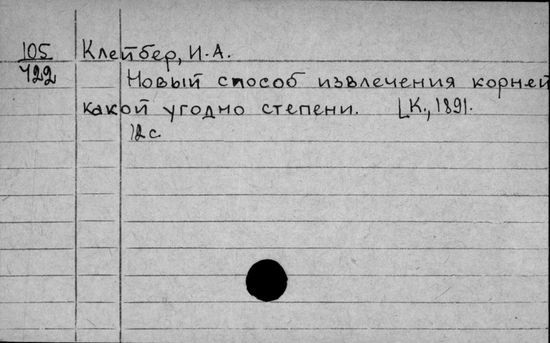 105 Клейбер, И.А.
422 Новый способ извлечения корней
какой угодно степени. [К., 1891.
12 с.